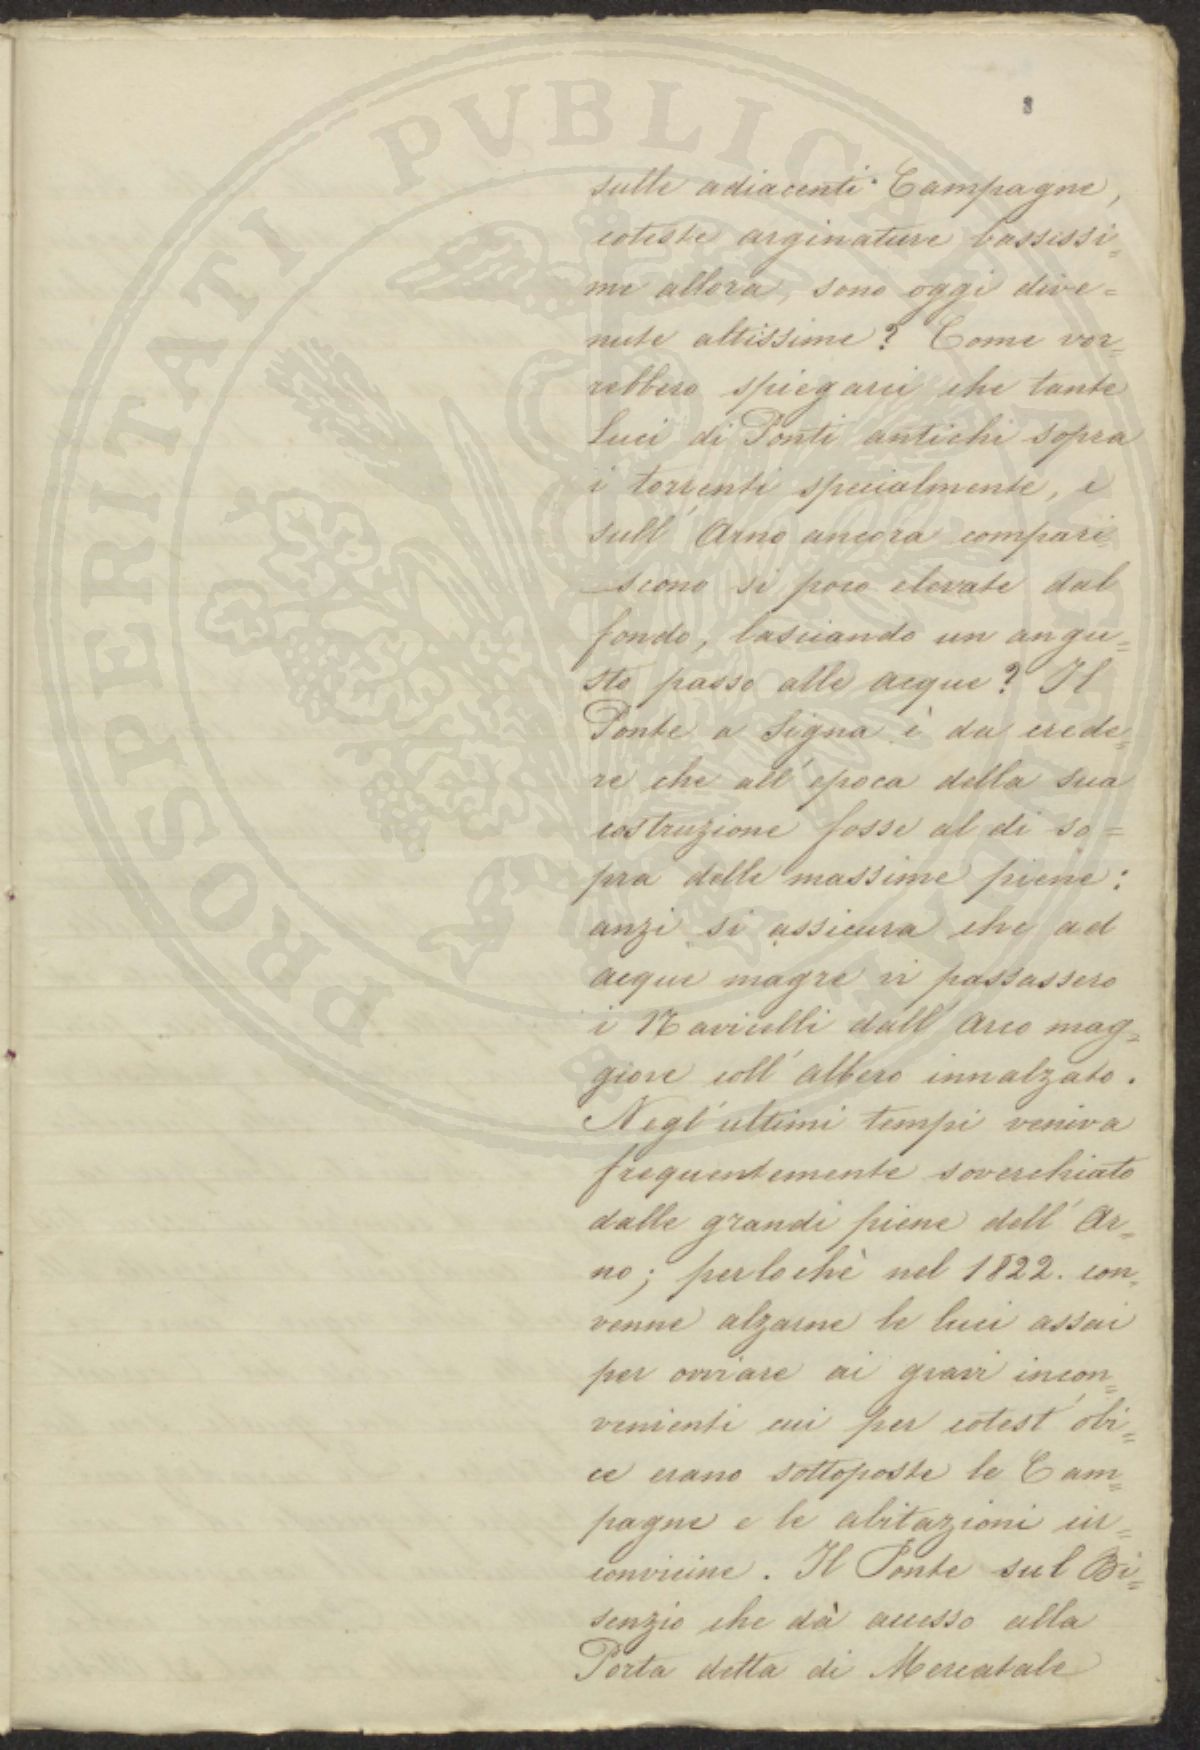 8
sulle adiacenti Campagne,
coteste arginature bassissi=
me allora, sono oggi dive=
nute altissime? Come vor=
rebbero spiegarci che tante
luci di Ponti antichi sopra
i torrenti specialmente, e
sull'Arno ancora compari=
scono si poco elevate dal
fondo, lasciando un angu=
sto passo alle acque? Il
Ponte a Signa è da crede=
re che all'epoca della sua
costruzione fosse al di so=
pra delle massime piene:
anzi si assicura che ad
acque magre vi passassero
i Navicelli dall'Arco mag=
giore coll'albero innalzato.
Negl'ultimi tempi veniva
frequentemente soverchiato
dalle grandi piene dell'Ar=
no; perlochè nel 1822. con=
venne alzarne le luci assai
per ovviare ai gravi incon=
venienti cui per cotest'obi=
ce erano sottoposte le Cam=
pagne e le abitazioni cir=
convicine. Il Ponte sul Bi=
senzio che dà accesso alla
Porta detta di Mercatale
PROSPERITATI PVBLICAE